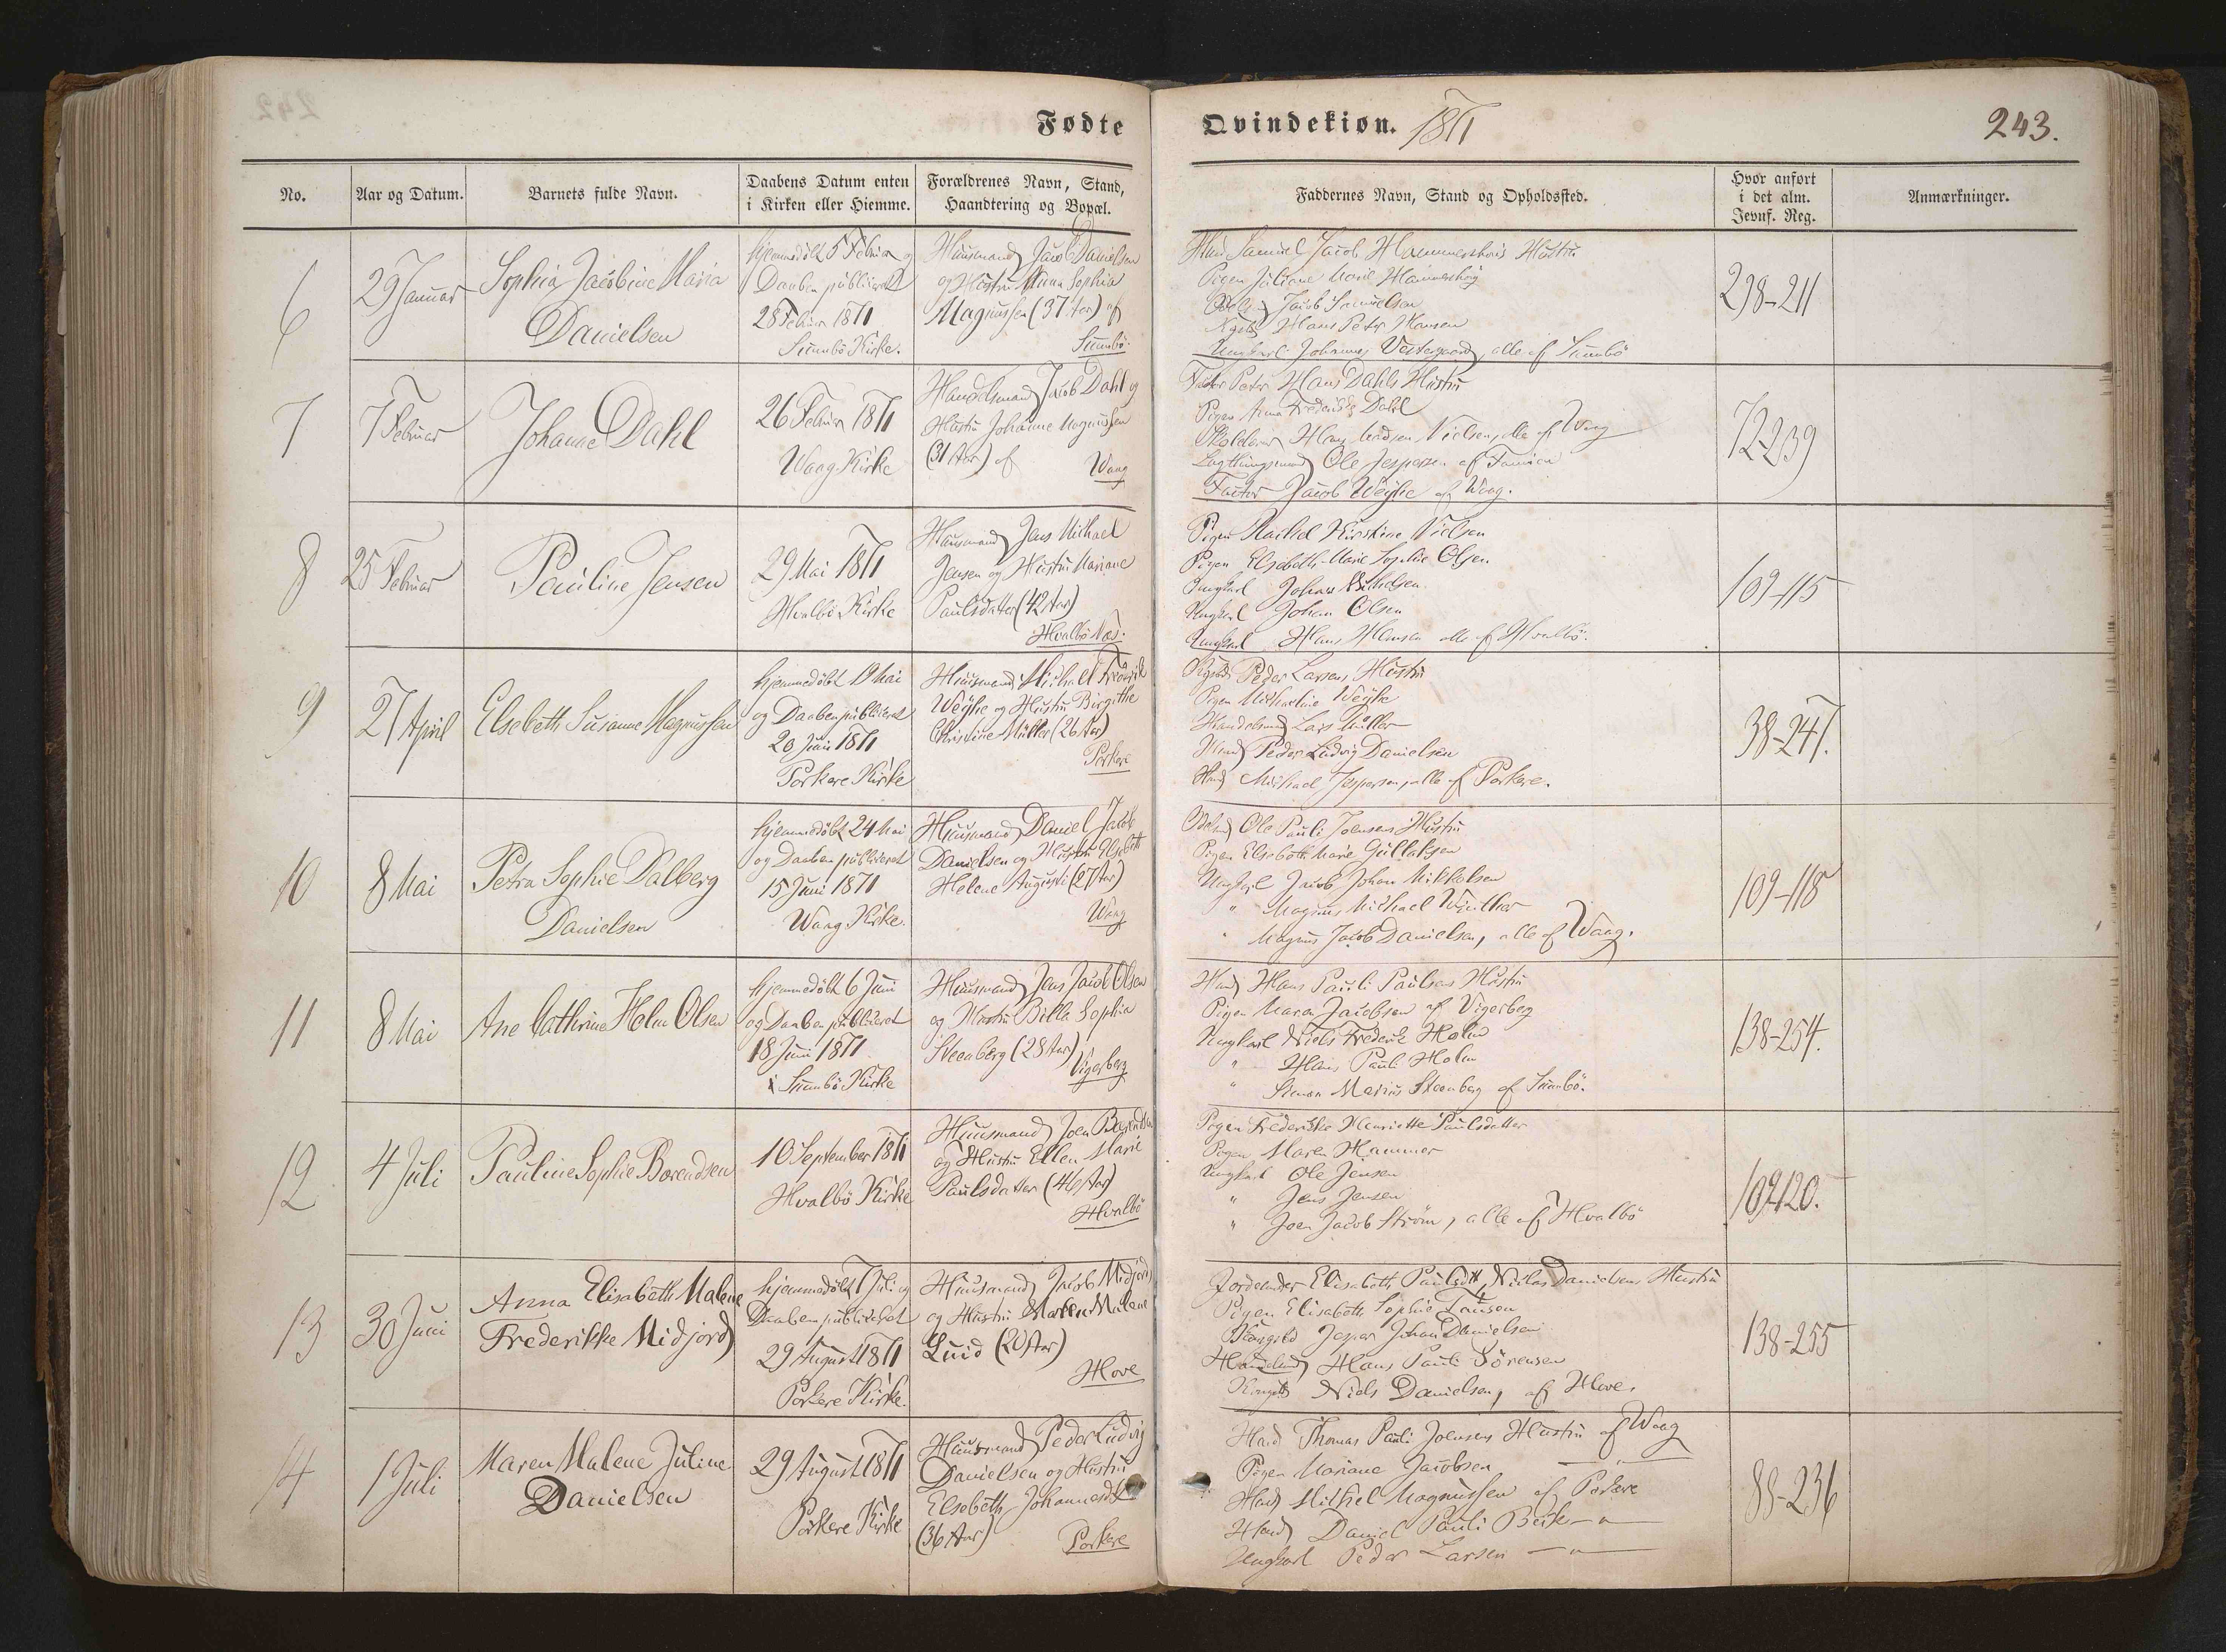 Fødte
Qvindekiøn. 1871
243.
No.
Aar og Datum.
Barnets fulde Navn.
Daabens Datum enten
i Kirken eller Hiemme.
Forældrenes Navn, Stand,
Haandtering og Bopæl.
Faddernes Navn, Stand og Opholdssted.
Hvor anført
i det alm.
Jevnf. Reg.
Anmærkninger.
6
29 Januar
Sophia Jacobine Maria
Danielsen
hjemmedöbt 5 Februar og
Daaben publiceret
28 Februar 1871
Sumbö Kirke.
Huusmand Jacob Danielsen
og Hustru Anna Sophia
Magnussen (37 Aar) af
Sumbö.
Samuel Jacob Hammershøis Hustru
Pigen Juliane Marie Hammershøi
Jacob Samuelsen
Hans Peter Hansen
Ungkarl Johannes Vestergaard, alle af Sumbö
298-211
7
7 Februar
Johanne Dahl
26 Februar 1871
Waag Kirke
Handelsmand Jacob Dahl og
Hustru Johanne Magnussen
(31 Aar) af
Waag
Peter Hans Dahls Hustru
Pigen Anna Frederikke Dahl
Skolelærer Hans Nielsen, alle af Waag
Lagthingsmand Ole Jespersen af Famien
Factor Jacob Weyhe af Waag.
72-239
8
25 Februar
Pauline Jensen
29 Mai 1871
Hvalbö Kirke
Huusmand Jens Michael
Jensen og Hustru Mariane
Paulsdatter (42 Aar)
Hvalbö Næs.
Pigen Rachel Kirstine Nielsen
Pigen Elsebeth Marie Sophie Olsen
Ungkarl Johan Michelsen
Ungkarl Johan Olsen
Ungkarl Hans Hansen alle af Hvalbö.
109-115
9
27 April
Elsebeth Susanne Magnussen
hjemmedöbt 19 Mai
og Daaben publiceret
20 Juni 1871
Porkere Kirke
Huusmand Michael Frederik
Weyhe og Hustru Birgithe
Christine Müller (26 Aar)
Porkere
Peder Larsens Hustru
Pigen Weyhe
Handelsmand Lars Müller
Peder Ludvig Danielsen
Michael Jespersen, alle af Porkere.
38-247.
10
8 Mai
Petra Sophie Dalberg
Danielsen
hjemmedöbt 24 Mai
og Daaben publiceret
15 Juni 1871
Waag Kirke.
Huusmand Daniel Jacob
Danielsen og Hustru Elsebeth
Helene Augusti (27 Aar)
Waag
Ole Pauli Joensens Hustru
Pigen Elsebeth Marie Gullaksen
Ungkarl Jacob Johan Mikkelsen
" Magnus Michael Winther
" Magnus Jacob Danielsen, alle af Waag.
109-118
11
8 Mai
Ane Cathrine Holm Olsen
hjemmedöbt 6 Juni
og Daaben publiceret
18 Juni 1871
i Sumbö Kirke
Huusmand Jens Jacob Olsen
og Hustru Billa Sophia
Steenberg (28 Aar)
Vigerberg
Hans Pauli Paulsens Hustru
Pigen Maren Jacobsen af Vigerberg
Ungkarl Niels Frederik Holm
" Hans Pauli Holm
" Simon Marius Steenberg af Sumbö.
138-254.
12
4 Juli
Pauline Sophie Berendsen
10 September 1871
Hvalbö Kirke
Huusmand Joen Berendsen
og Hustru Ellen Marie
Paulsdatter (46 Aar)
Hvalbö
Pigen Frederikke Henriette Paulsdatter
Pigen Maren Hammer
Ungkarl Ole Jensen
" Jens Jensen
" Joen Jacob Ström, alle af Hvalbö
109-120.
13
30 Juni
Anna Elisabeth Malene
Frederikke Midjord
hjemmedöbt 7 Juli og
Daaben publiceret
29 August 1871
Porkere Kirke.
Huusmand Jacob Midjord
og Hustru Maren Malene
Luid (20 Aar)
Hove
Jordemoder Elisabeth Paulsdtt, Niclas Danielsens Hustru
Pigen Elisabeth Sophie Tausen
Jesper Johan Danielsen
Hans Pauli Sörensen
Niels Danielsen, af Hove.
138-255
14
1 Juli
Maren Malene Juline
Danielsen
29 August 1871
Porkere Kirke
Huusmand Peder Ludvig
Danielsen og Hustru
Elsebeth Johannesdtt
(36 Aar)
Porkere
Thomas Pauli Joensens Hustru af Waag
Pigen Mariane Jacobsen — " —
Michel Magnussen af Porkere
Daniel Pauli Beck — " —
Ungkarl Peder Larsen — " —
88-236